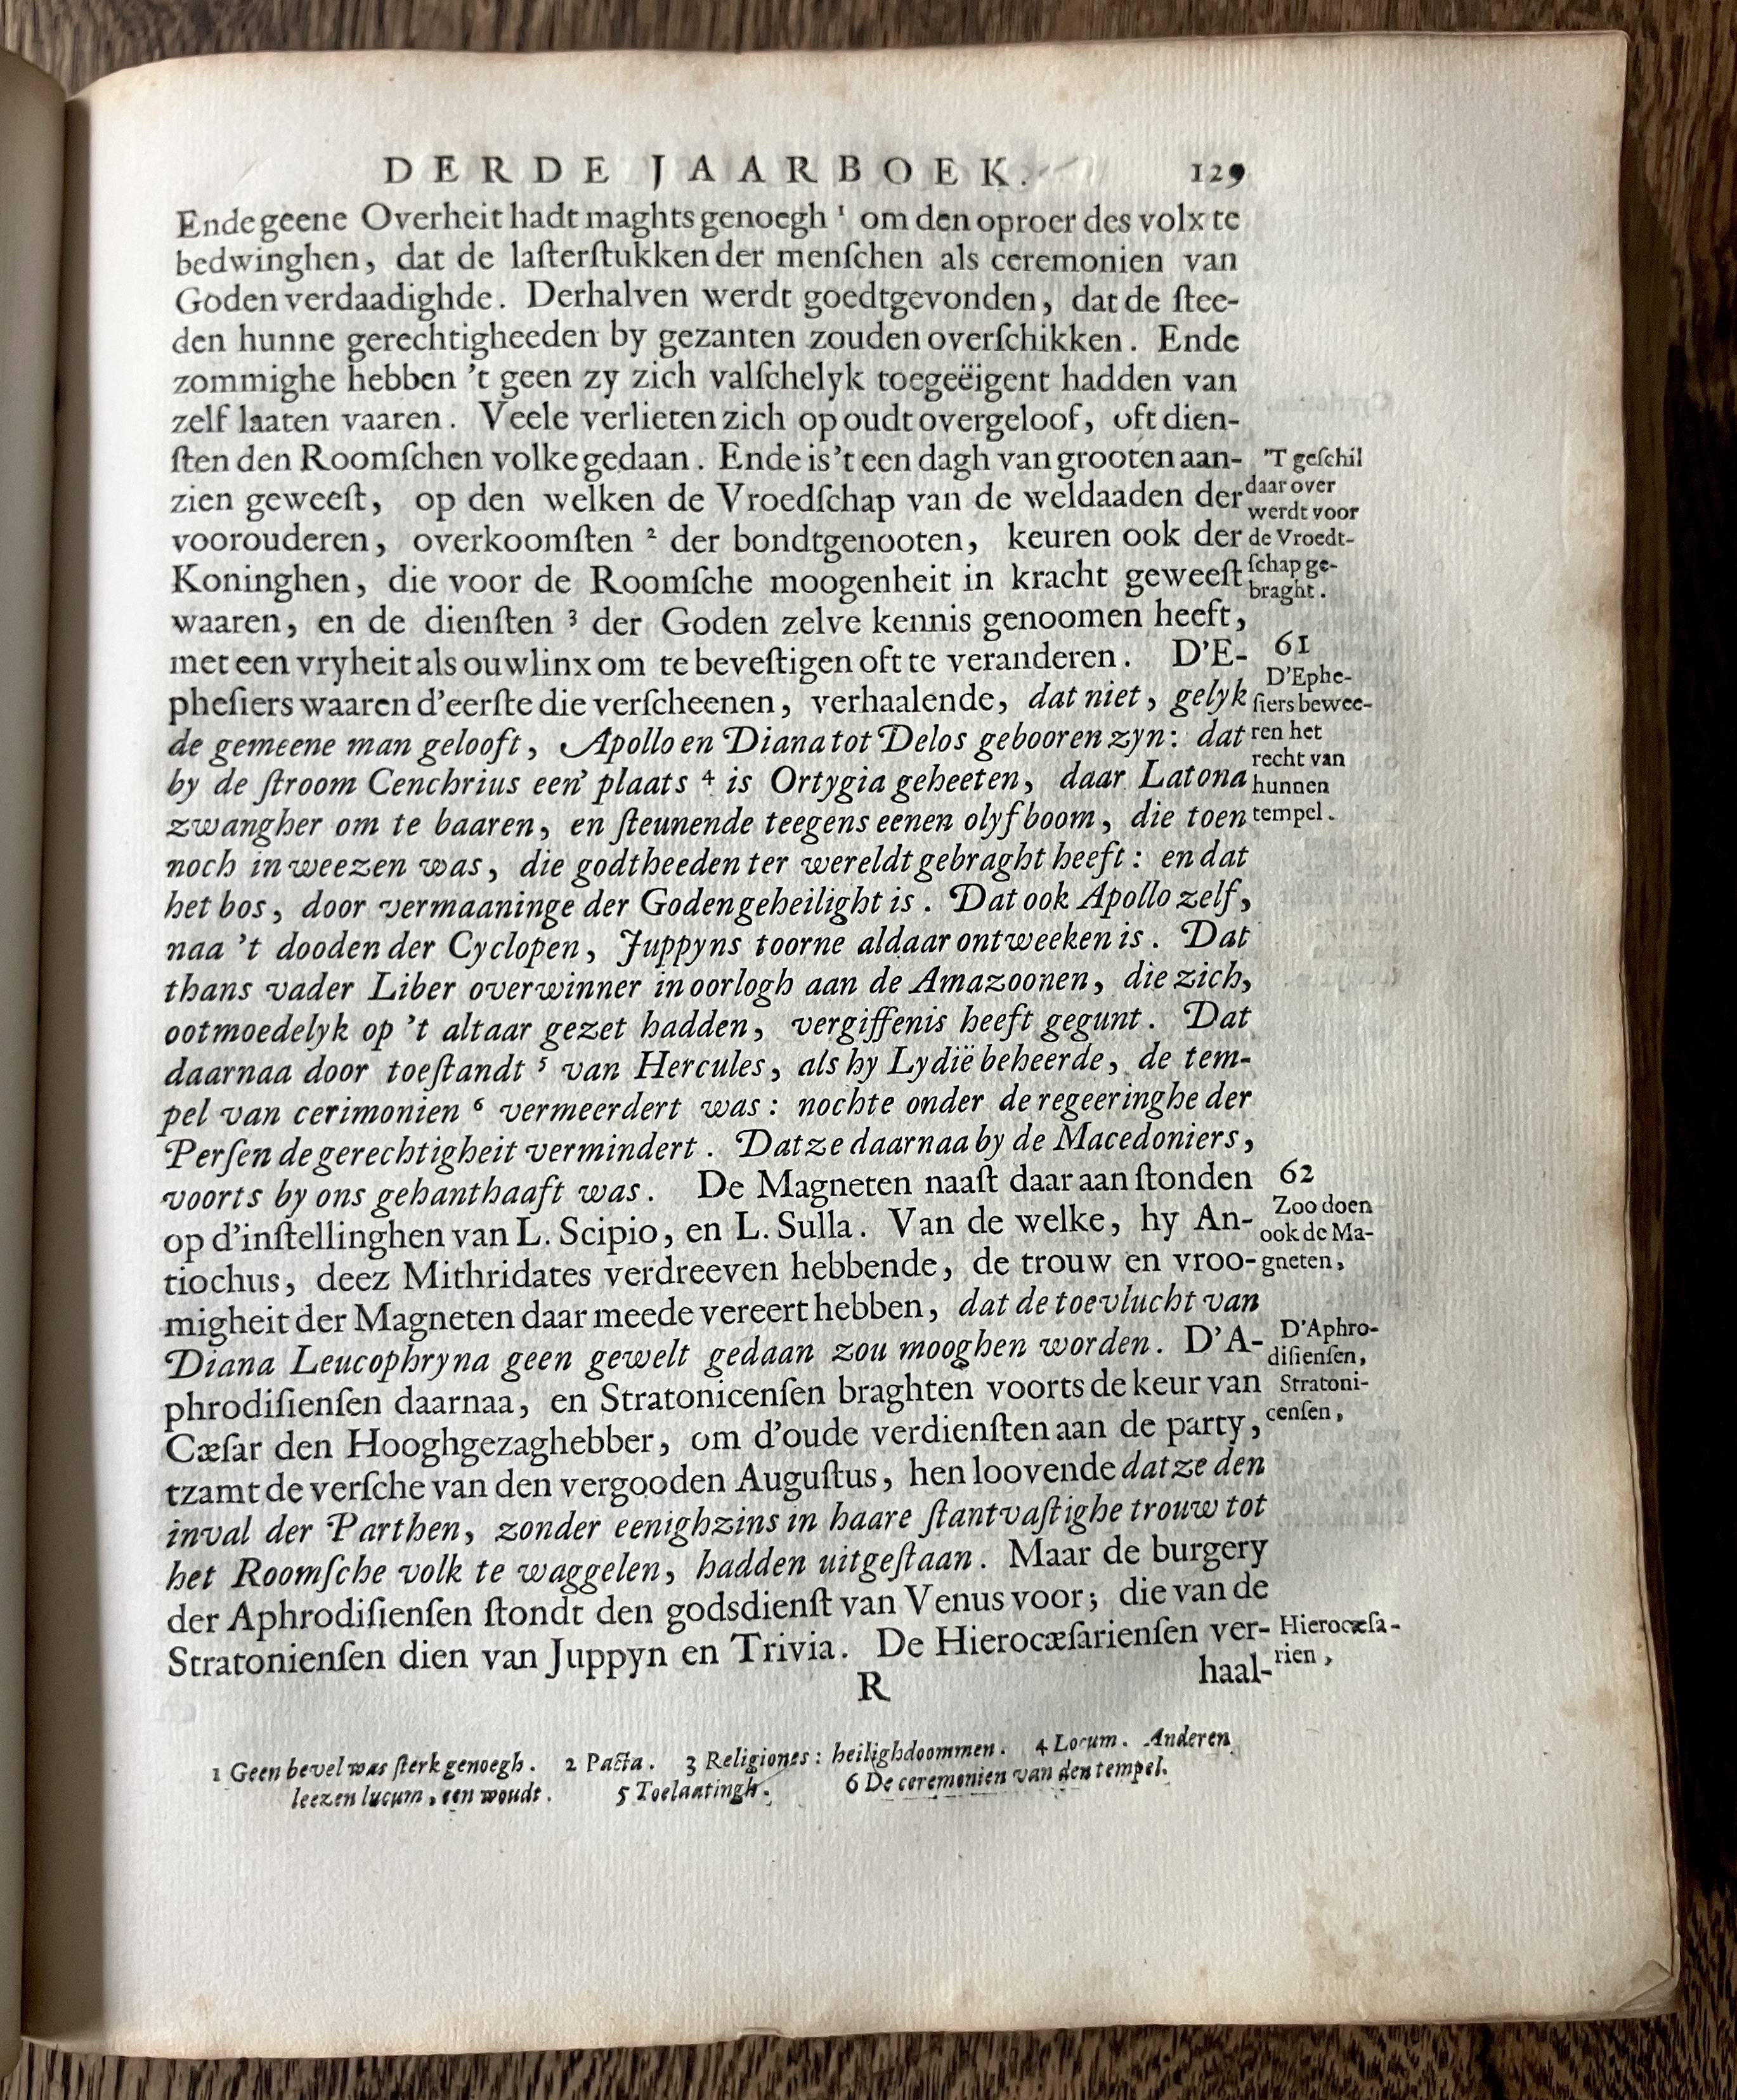 DERDE JAARBOEK. 129
Ende geene Overheit hadt maghts genoegh ¹ om den oproer des volx te
bedwinghen, dat de laſterſtukken der menſchen als ceremonien van
Goden verdaadighde. Derhalven werdt goedtgevonden, dat de ſtee-
den hunne gerechtigheeden by gezanten zouden overſchikken. Ende
zommighe hebben 't geen zy zich valſchelyk toegeëigent hadden van
zelf laaten vaaren. Veele verlieten zich op oudt overgeloof, oft dien-
ſten den Roomſchen volke gedaan. Ende is 't een dagh van grooten aan-
zien geweeſt, op den welken de Vroedſchap van de weldaaden der
voorouderen, overkoomſten ² der bondtgenooten, keuren ook der
Koninghen, die voor de Roomſche moogenheit in kracht geweeſt
waaren, en de dienſten ³ der Goden zelve kennis genoomen heeft,
met een vryheit als ouwlinx om te beveſtigen oft te veranderen. D'E-
pheſiers waaren d'eerſte die verſcheenen, verhaalende, dat niet, gelyk
de gemeene man gelooft, Apollo en Diana tot Delos gebooren zyn: dat
by de ſtroom Cenchrius een' plaats ⁴ is Ortygia geheeten, daar Latona
zwangher om te baaren, en ſteunende teegens eenen olyfboom, die toen
noch in weezen was, die godtheeden ter wereldt gebraght heeft: en dat
het bos, door vermaaninge der Goden geheilight is. Dat ook Apollo zelf,
naa 't dooden der Cyclopen, Juppyns toorne aldaar ontweeken is. Dat
thans vader Liber overwinner in oorlogh aan de Amazoonen, die zich,
ootmoedelyk op 't altaar gezet hadden, vergiffenis heeft gegunt. Dat
daarnaa door toeſtandt ⁵ van Hercules, als hy Lydië beheerde, de tem-
pel van cerimonien ⁶ vermeerdert was: nochte onder de regeeringhe der
Perſen de gerechtigheit vermindert. Dat ze daarnaa by de Macedoniers,
voorts by ons gehanthaaft was. De Magneten naaſt daar aan ſtonden
op d'inſtellinghen van L. Scipio, en L. Sulla. Van de welke, hy An-
tiochus, deez Mithridates verdreeven hebbende, de trouw en vroo-
migheit der Magneten daar meede vereert hebben, dat de toevlucht van
Diana Leucophryna geen gewelt gedaan zou mooghen worden. D'A-
phrodiſienſen daarnaa, en Stratonicenſen braghten voorts de keur van
Cæſar den Hooghgezaghebber, om d'oude verdienſten aan de party,
tzamt de verſche van den vergooden Auguſtus, hen loovende dat ze den
inval der Parthen, zonder eenighzins in haare ſtantvaſtighe trouw tot
het Roomſche volk te waggelen, hadden uitgeſtaan. Maar de burgery
der Aphrodiſienſen ſtondt den godsdienſt van Venus voor; die van de
Stratonienſen dien van Juppyn en Trivia. De Hierocæſarienſen ver-
R haal-
'T geſchil
daar over
werdt voor
de Vroedt-
ſchap ge-
braght.
61
D'Ephe-
ſiers bewee-
ren het
recht van
hunnen
tempel.
62
Zoo doen
ook de Ma-
gneten,
D'Aphro-
diſienſen,
Stratoni-
cenſen,
Hierocæſa-
rien,
1 Geen bevel was ſterk genoegh. 2 Pacta. 3 Religiones: heilighdoommen. 4 Locum. Anderen
leezen lucum, een woudt. 5 Toelaatingh. 6 De ceremonien van den tempel.